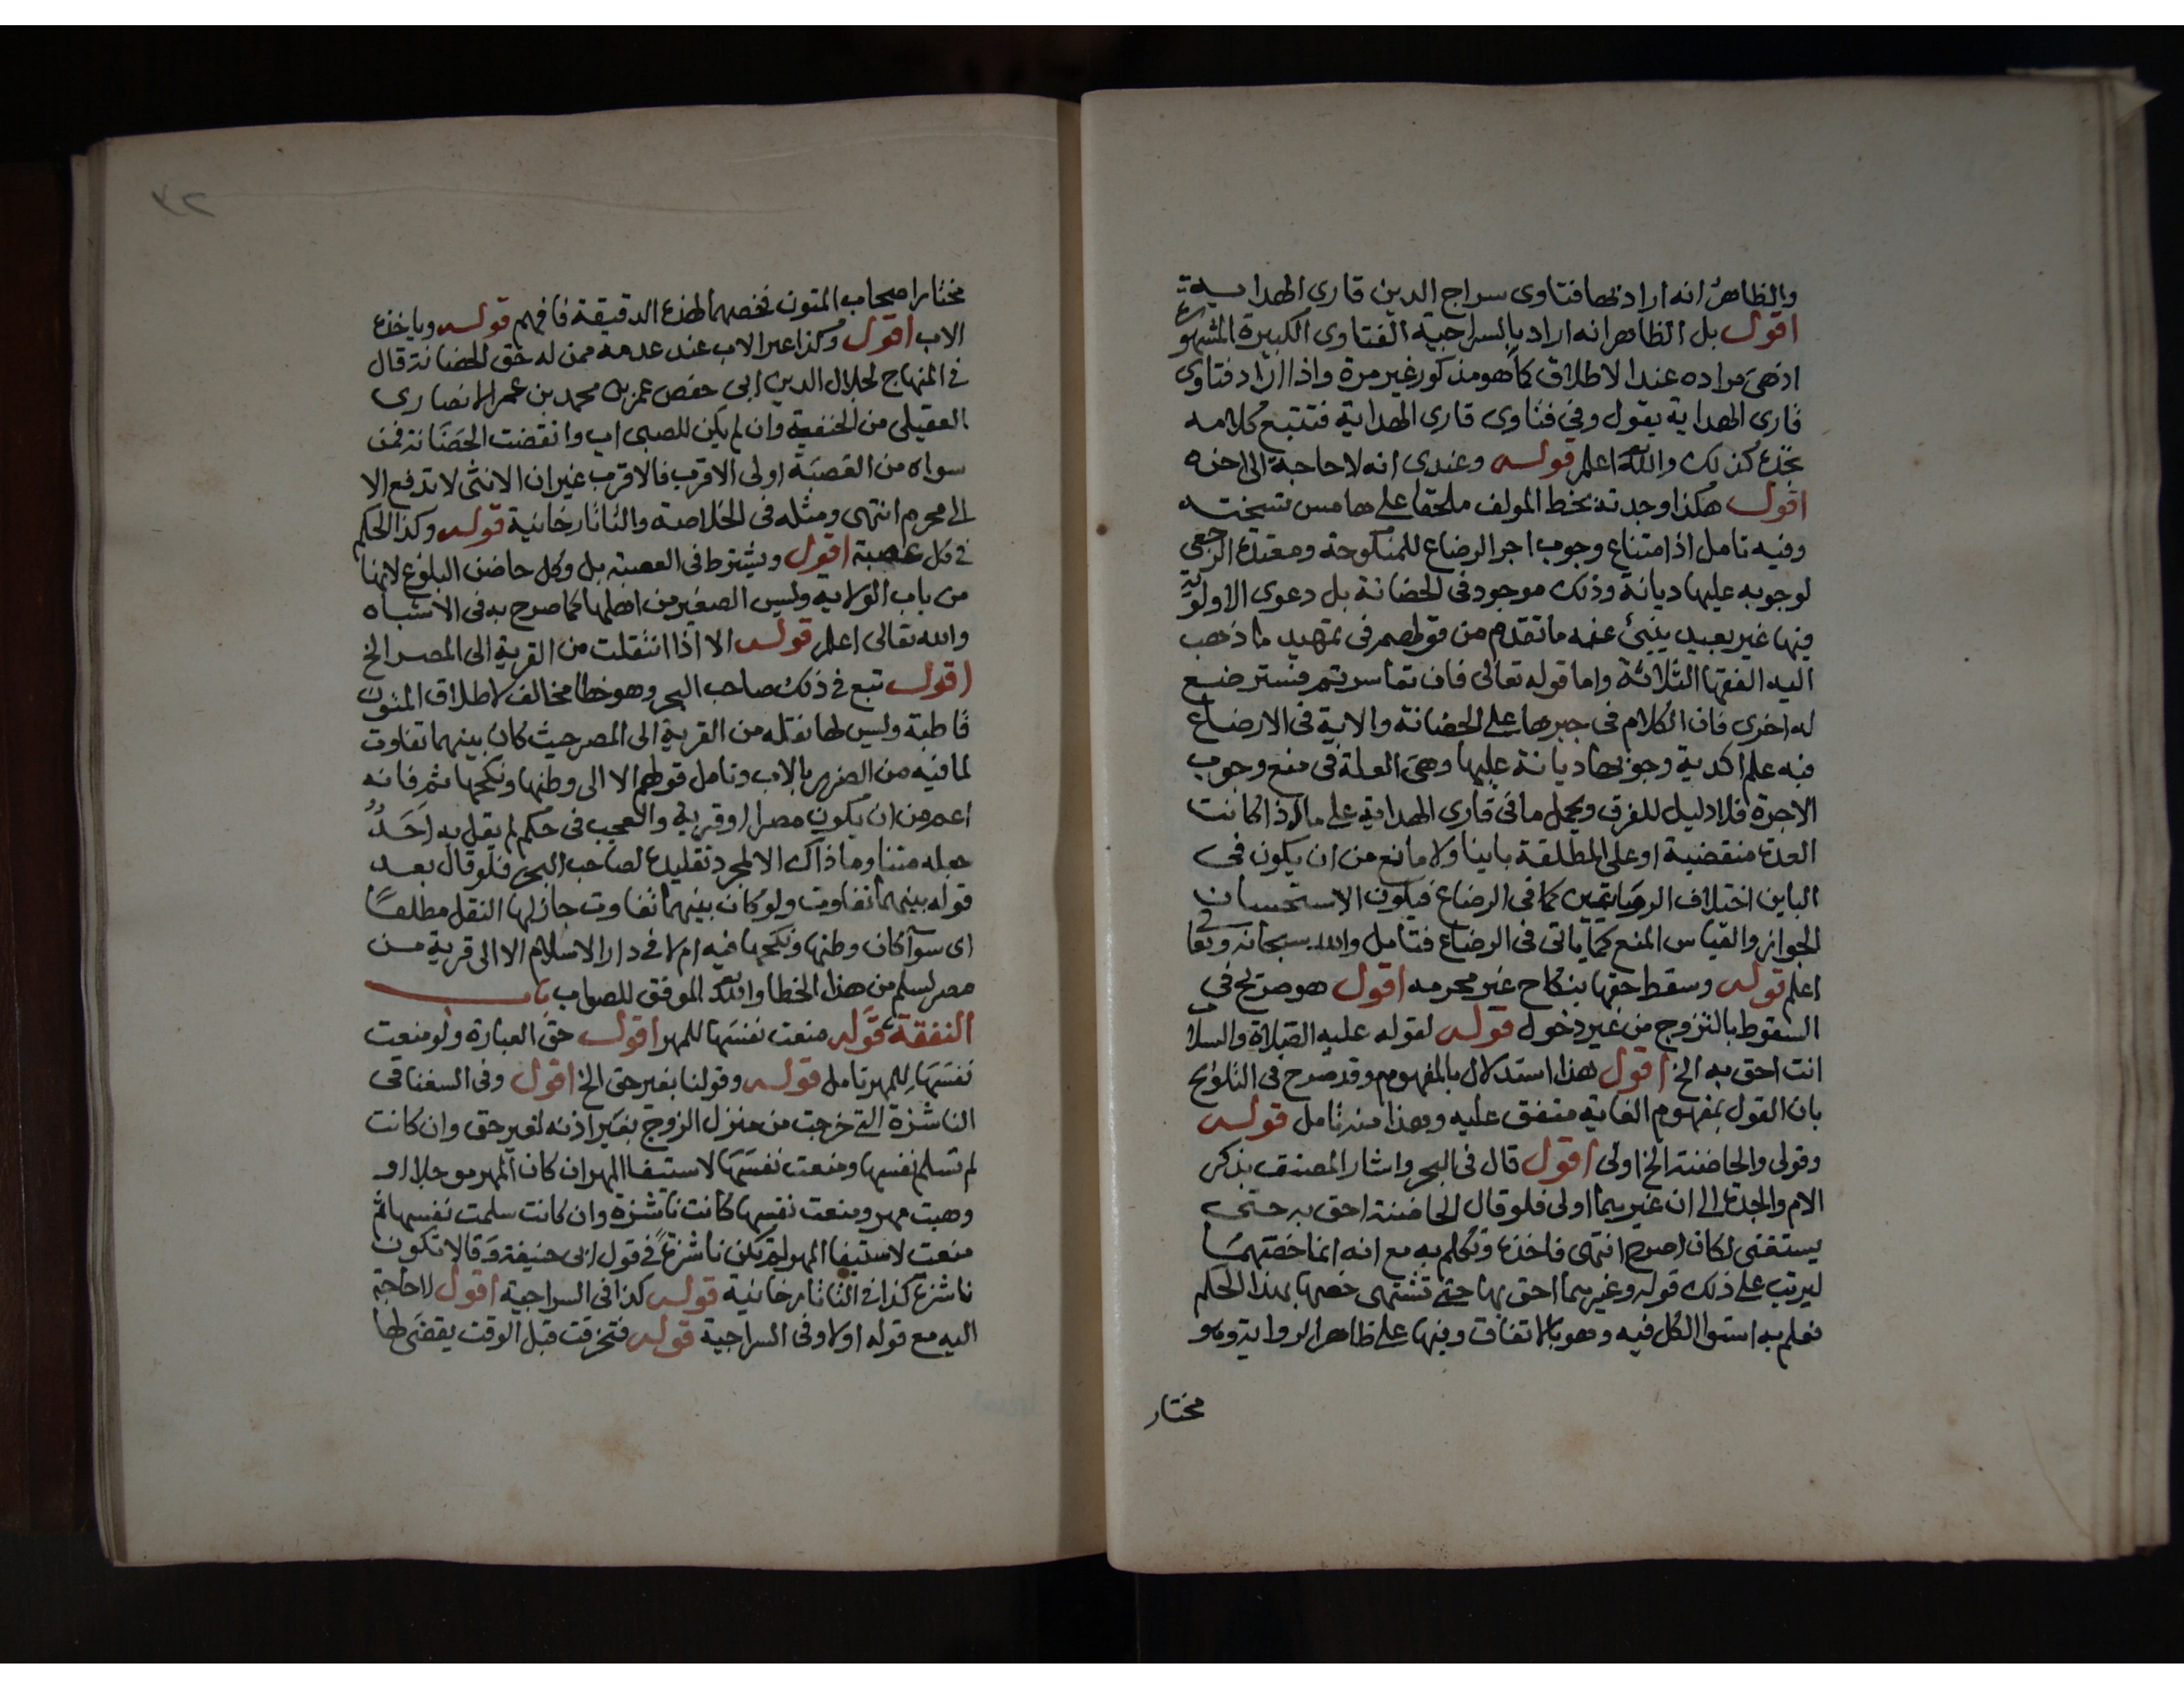 والظاهر انه اراد بها فتاوى سراج الدين قارى الهداية
اقول بل الظاهر انه اراد بالسراجية الفتاوى الكبيرة المشهورة
اذ هي مراده عند الاطلاق كما هو مذكور غير مرة واذا اراد فتاوى
قارى الهداية يقول وفى فتاوى قارى الهداية فتتبع كلامه
تجده كذلك والله اعلم قوله وعندى انه لا حاجة الى اخره
اقول هكذا وجدته بخط المولف ملحقا على هامش نسخته
وفيه تامل اذ امتناع وجوب اجر الرضاع للمنكوحة ومعتدة الرجعي
لوجوبه عليها ديانة وذلك موجود فى الحضانة بل دعوى الاولوية
فيها غير بعيد ينبئ عنه ما تقدم من قولهم فى تمهيد ما ذهب
اليه الفقها الثلاثة واما قوله تعالى فان تعاسرتم فسترضع
له اخرى فان الكلام فى جبرها على الحضانة والاية فى الارضاع
فيه علم اكدية وجوبها ديانة عليها وهي العلة فى منع وجوب
الاجرة فلا دليل للفرق ويحمل ما فى قارى الهداية على ما اذا كانت
العدة منقضية او على المطلقة باينا ولا مانع من ان يكون فى
الباين اختلاف الروايتين كما فى الرضاع فيكون الاستحسان
الجواز والقياس المنع كما ياتى فى الرضاع فتامل والله سبحانه وتعالى
اعلم قوله وسقط حقها بنكاح غير محرمه اقول هو صريح في
السقوط بالتزوج من غير دخول قوله لقوله عليه الصلاة والسلا
انت احق به الخ اقول هذا استدلال بالمفهوم وقد صرح فى التلويح
بان القول بمفهوم الغاية متفق عليه وهذا منه تامل قوله
وقولى والحاضنة الخ اولى اقول قال فى البحر واشار المصنف بذكر
الام والجدة الى ان غيرهما اولى فلو قال الحاضنة احق به حتى
يستغنى لكان اصرح انتهى فاخذه وتكلم به مع انه انما خصهما
ليرتب على ذلك قوله وغيرهما احق بها حتى تشتهى خصها بهذا الحكم
فعلم به استوا الكل فيه وهو بالاتفاق وفيها على ظاهر الرواية وهو
مختار
٣٢
مختار اصحاب المتون فخصهما لهذه الدقيقة فافهم قوله وياخذه
الاب اقول وكذا غير الاب عند عدمه ممن له حق الحضانة قال
في المنهاج لجلال الدين ابي حفص عمر بن محمد بن عمر الانصارى
العقيلى من الحنفية وان لم يكن للصبى اب وانقضت الحضانة فمن
سواه من العصبة اولى الاقرب فالاقرب غير ان الانثى لا تدفع الا
الى محرم انتهى ومثله فى الخلاصة والتاتارخانية قوله وكذا الحكم
في كل عصبة اقول ويشترط فى العصبة بل وكل حاضن البلوغ لانها
من باب الولاية وليس الصغير من اهلها كما صرح به فى الاشباه
والله تعالى اعلم قوله الا اذا انتقلت من القرية الى المصر الخ
اقول تبع في ذلك صاحب البحر وهو خطا مخالف لاطلاق المتون
قاطبة وليس لها نقله من القرية الى المصر حيث كان بينهما تفاوت
لما فيه من الضرر بالاب وتامل قولهم الا الى وطنها ونكحها ثم فانه
اعم من ان يكون مصرا او قرية والعجب فى حكم لم يقل به احد
جعله متنا وما ذاك الا لمجرد تقليده لصاحب البحر فلو قال بعد
قوله بينهما تفاوت ولو كان بينهما تفاوت جاز لها النقل مطلقا
اى سوآ كان وطنها ونكحها فيه ام لا في دار الاسلام الا الى قرية من
مصر لسلم من هذا الخطا والله الموفق للصواب باب
النفقة قوله منعت نفسها للمهر اقول حق العبارة ولو منعت
نفسها للمهر تامل قوله وقولنا بغير حق الخ اقول وفى السغناقى
الناشزة التي خرجت من منزل الزوج بغير اذنه لغير حق وان كانت
لم تسلم نفسها ومنعت نفسها لاستيفا المهر ان كان المهر موجلا او
وهبت مهر ومنعت نفسها كانت ناشزة وان كانت سلمت نفسها ثم
منعت لاستيفا المهر لم تكن ناشزة في قول ابى حنيفة وقالا تكون
ناشزة كذا فى التاتارخانية قوله كذا فى السراجية اقول لا حاجة
اليه مع قوله اولا وفى السراجية قوله فتخرقت قبل الوقت يقضى لها